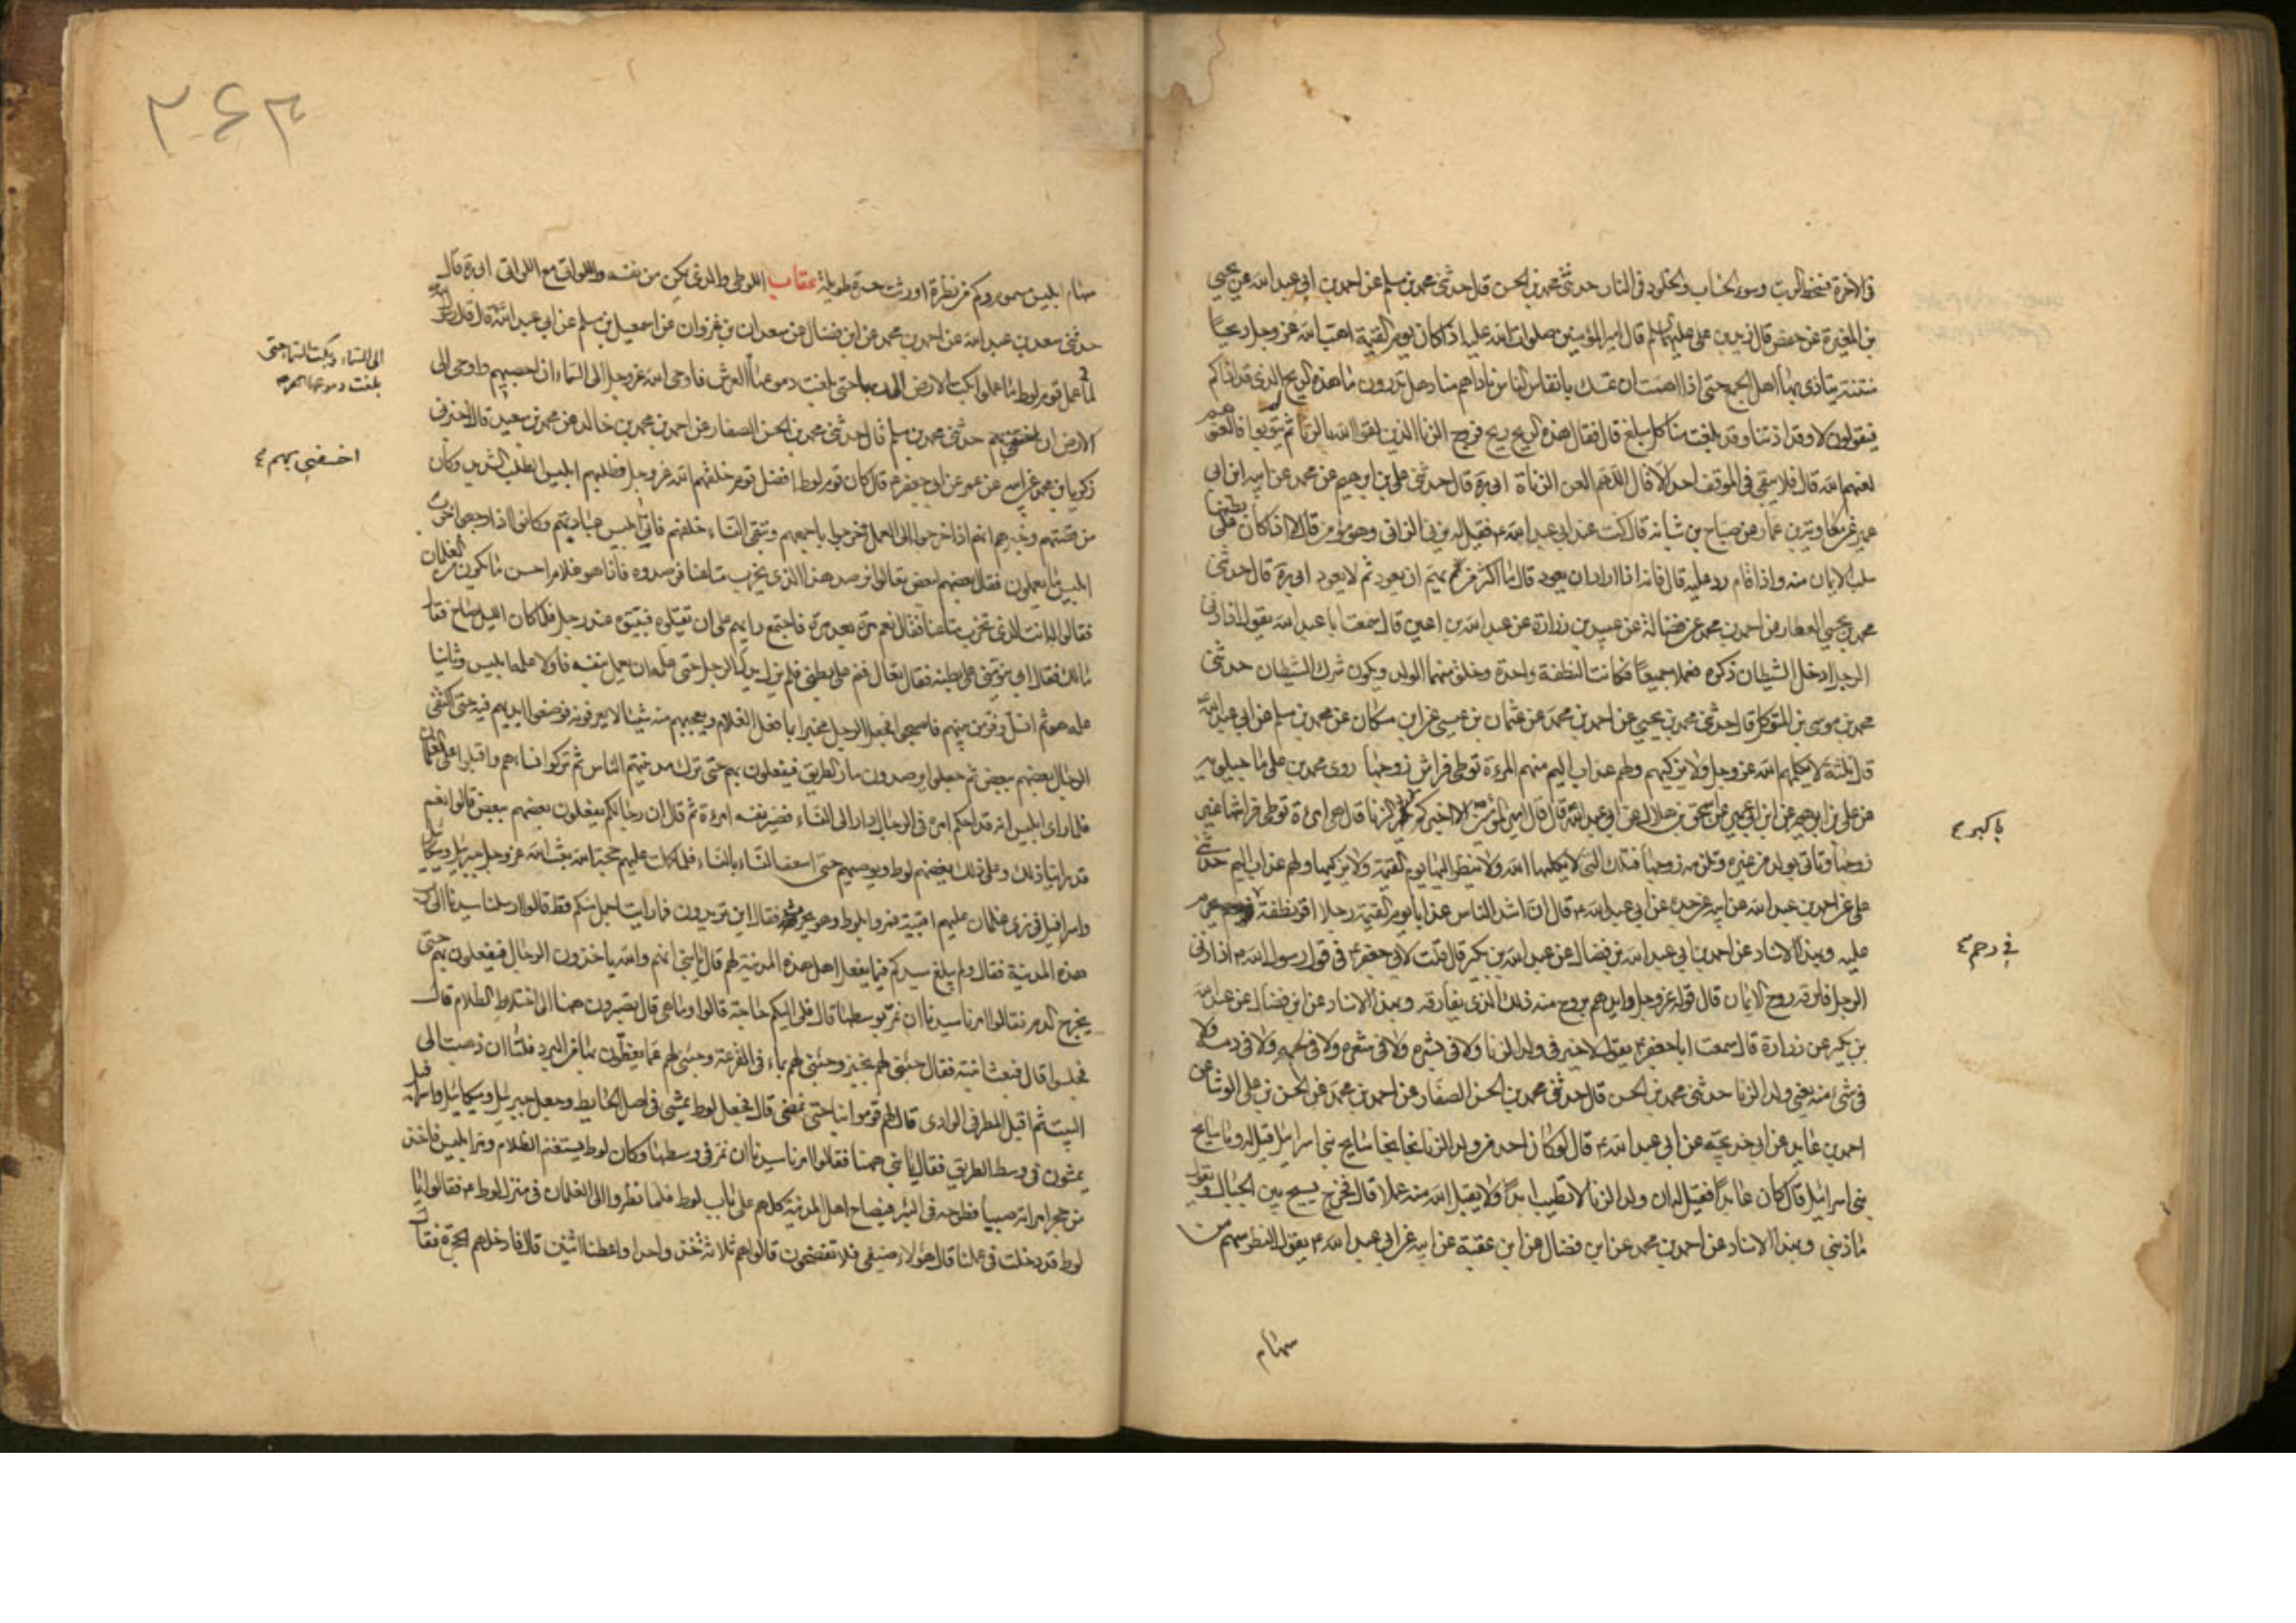 فى الاخرة فسخط الرب وسوء الحساب والخلود فى النار حدثنى محمد بن الحسن قال حدثنى محمد بن سلم عن احمد بن ابى عبد الله عن يحيى
بن المغيرة عن حفص قال زيد بن على عليهما السلام قال امير المؤمنين صلوات الله عليه اذا كان يوم القيمة اهب الله عز وجل ريحا
منتنة يتاذى بها اهل الجمع حتى اذا همت ان تمسك بانفاس الناس ناداهم مناد هل تدرون ما هذه الريح الذى قد اذاكم
فيقولون لا وقد اذتنا وقد بلغت منا كل مبلغ قال فقال هذه الريح ريح فروج الزنا الذين لقوا الله بالزنا ثم لم يتوبوا فالعنوهم
لعنهم الله قال فلا يبقى فى الموقف احد الا قال اللهم العن الزناة ابى ره قال حدثنى على بن ابرهيم عن محمد عن ابيه ابن ابى
عمير عن معاوية بن عمار عن صباح بن شبابه قال كنت عند ابى عبد الله ع فقيل له يزنى الزانى وهو مؤمن قال لا اذا كان على بطنها
سلب الايمان منه واذا قام رد عليه قال فانه اذا اراد ان يعود قال ما اكثر من يهم ان يعود ثم لا يعود ابى ره قال حدثنى
محمد بن يحيى العطار عن احمد بن محمد عن فضالة عن عبيد بن زرارة عن عبد الله بن اعين قال سمعت ابا عبد الله يقول اذا زنى
الرجل ادخل الشيطان ذكره فعملا جميعا فكانت النطفة واحدة وخلق منهما الولد ويكون شرك الشيطان حدثنى
محمد بن موسى بن المتوكل قال حدثنى محمد بن يحيى عن احمد بن محمد عن عثمان بن عيسى عن ابن مسكان عن محمد بن مسلم عن ابى عبد الله
قال ثلثة لا يكلمهم الله عز وجل ولا يزكيهم ولهم عذاب اليم منهم المرءة توطى فراش زوجها روى محمد بن على ماجيلويه
عن على بن ابرهيم عن ابن ابى عمير عن اسحق بن هلال عن ابى عبد الله قال قال امير المؤمنين الا اخبركم الزنا قال هى امرءة توطى فراشها غير
باكبر
زوجها وتاتى بولد من غيره وتلزمه زوجها فتلك التى لا يكلمها الله ولا ينظر اليها يوم القيمة ولا يزكيها ولهم عذاب اليم حدثنى
على عن احمد بن عبد الله عن ابيه عن جده عن ابى عبد الله ع قال ان اشد الناس عذابا يوم القيمة رجلا اقر نطفة
فى رحم
عليه وبهذا الاسناد عن احمد بن ابى عبد الله بن فضال عن عبد الله بن بكير قال قلت لابى جعفر ع فى قول رسول الله ص اذا زنى
الرجل فارقه روح الايمان قال قوله عز وجل وايدهم بروح منه ذلك الذى يفارقه وبهذا الاسناد عن ابن فضال عن عبد الله
بن بكير عن زرارة قال سمعت ابا جعفر ع يقول لا خير فى ولد الزنا ولا فى بشره ولا فى شعره ولا فى لحمه ولا فى دمه ولا
فى شىء منه يعنى ولد الزنا حدثنى محمد بن الحسن قال حدثنى محمد بن الحسن الصفار عن احمد بن محمد عن الحسن بن على الوشا عن
احمد بن عايد عن ابى خديجة عن ابى عبد الله ع قال لو كان احد من ولد الزنا نجا نجا سايح بنى اسرائيل فقيل له وما سايح
بنى اسرائيل قال كان عابدا فقيل له ان ولد الزنا لا تطيب ابدا ولا يقبل الله منه عملا قال فخرج يسيح بين الجبال ويقول
ما ذنبى وبهذا الاسناد عن احمد بن محمد عن ابن فضال عن ابن عقبة عن ابيه عن ابى عبد الله ع يقول النظر سهم من
سهام
۲۶۳
سهام ابليس مسموم وكم من نظرة اورثت حسرة طويلة عقاب اللوطى والذى يمكن من نفسه واللواتى مع اللواتى ابى ره قال
حدثنى سعد بن عبد الله عن احمد بن محمد عن ابن فضال عن سعدان بن غزوان عن اسمعيل بن مسلم عن ابى عبد الله قال قال رسول الله
لما عمل قوم لوط ما عملوا بكت الارض الى ربها حتى بلغت دموعها العرش فاوحى الله عز وجل الى السماء ان احصبيهم واوحى الى
الى السماء وبكت السماء حتى
بلغت دموعها العرش
الارض ان حدثنى محمد بن سلم قال حدثنى محمد بن الحسن الصفار عن احمد بن محمد بن خالد عن محمد بن سعيد قال اخبرنى
اخسفى بهم
زكريا بن محمد عن ابيه عن عمرو عن ابى جعفر ع قال كان قوم لوط افضل قوم خلقهم الله عز وجل فطلبهم ابليس الطلب الشديد وكان
من قصتهم وخبرهم انهم اذا خرجوا الى العمل خرجوا باجمعهم وتبقى النساء خلفهم فاتى ابليس عبادتهم وكانوا اذا رجعوا خرب
ابليس ما يعملون فقال بعضهم لبعض تعالوا نرصد هذا الذى يخرب متاعنا فرصدوه فاذا هو غلام احسن ما يكون من الغلمان
فقالوا له انت الذى تخرب متاعنا فقال نعم مرة بعد مرة فاجتمع رايهم على ان تقتلوه فبيتوه عند رجل فلما كان الليل صاح فقال
مالك فقال ابى ينومنى على بطنه فقال تعال فنم على بطنى فلم يزل يدلك الرجل حتى علمه ان يعمل بنفسه فاولا علمه ابليس وثانيا
علمه هو ثم انسل وفر من بينهم فاصبحوا فجعل الرجل يخبر بما فعل الغلام ويعجبهم منه شيئا لا يعرفونه فوضعوا ايديهم فيه حتى اكتفى
الرجال بعضهم ببعض ثم جعلوا يرصدون مار الطريق فيفعلون بهم حتى ترك مدينتهم الناس ثم تركوا نساءهم واقبلوا على الغلمان
فلما راى ابليس انه قد احكم امره فى الرجال دار الى النساء فصير نفسه امرءة ثم قال ان رجالكم يفعلون بعضهم ببعض قالوا نعم
قد راينا ذلك وعلى ذلك يعضهم لوط ويوصيهم حتى استغنا النساء بالنساء فلما كملت عليهم حجة الله بعث الله عز وجل جبريل وميكائيل
واسرافيل فى زى غلمان عليهم اقبية فمروا بلوط وهو يحرث فقال اين تريدون فما رايت اجمل منكم قط قالوا ارسلنا سيدنا الى رب
هذه المدينة فقال ولم يبلغ سيدكم فيما يفعل اهل هذه المدينة لهم قال يا بنى انهم والله ياخذون الرجال فيفعلون بهم حتى
يخرج الدم فقالوا امرنا سيدنا ان نمر بوسطها قال فلى اليكم حاجة قالوا وما هى قال تصبرون ههنا الى اختلاط الظلام قال
فجلسوا قال فبعث ابنته فقال جيئى لهم بخبز وجيئى لهم بماء فى القرعة وجيئى لهم عباء يتغطون بها من البرد فلما ان ذهبت الى
البيت ثم اقبل المطر فى الوادى قال لهم قوموا بنا حتى نمضى قال فجعل لوط يمشى فى اصل الحايط وجعل جبريل وميكائيل واسرافيل
يمشون فى وسط الطريق فقال يا بنى ههنا فقالوا امرنا سيدنا ان نمر فى وسطها وكان لوط يستغنم الظلام ومر ابليس فاخذ
من حجر امراته صبيا فطرحه فى البئر فصاح اهل المدينة كلهم على باب لوط فلما نظروا الى الغلمان فى منزل لوط ع فقالوا يا
لوط قد دخلت فى عملنا قال هؤلاء ضيفى فلا تفضحون قالوا هم ثلاثة خذ واحدا واعطنا اثنين قال فادخلهم الحجرة فقال